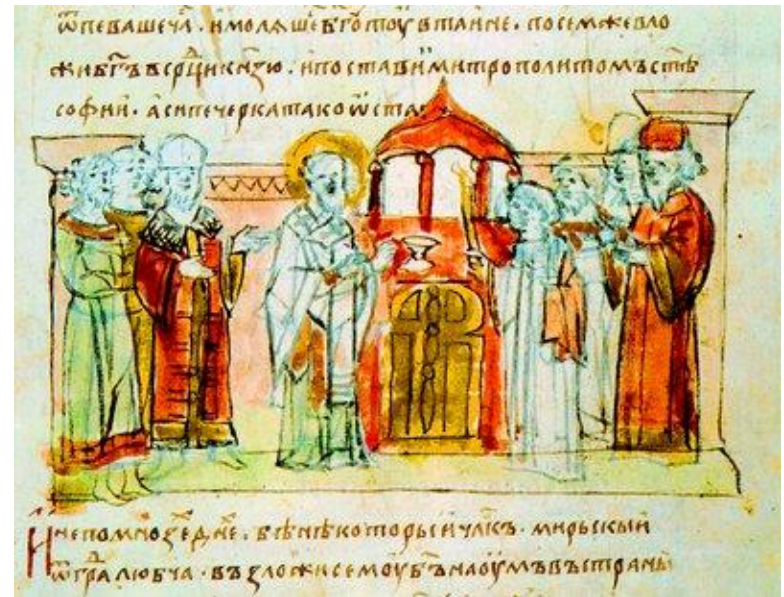 ѿпеваше и молѧше бг҃ тоу в таине · посем же вло
жи бг҃ъ в срⷣци кн҃зю · и постави митрополитомъ стѣ
софии · а си печерка тако ѡста
И не по мнозѣ дн҃е · бѣ нѣкоторыи чл҃къ · мирьскыи
ѿ граⷣ любча · възложи семоу бг҃ъ на оумъ въ страны